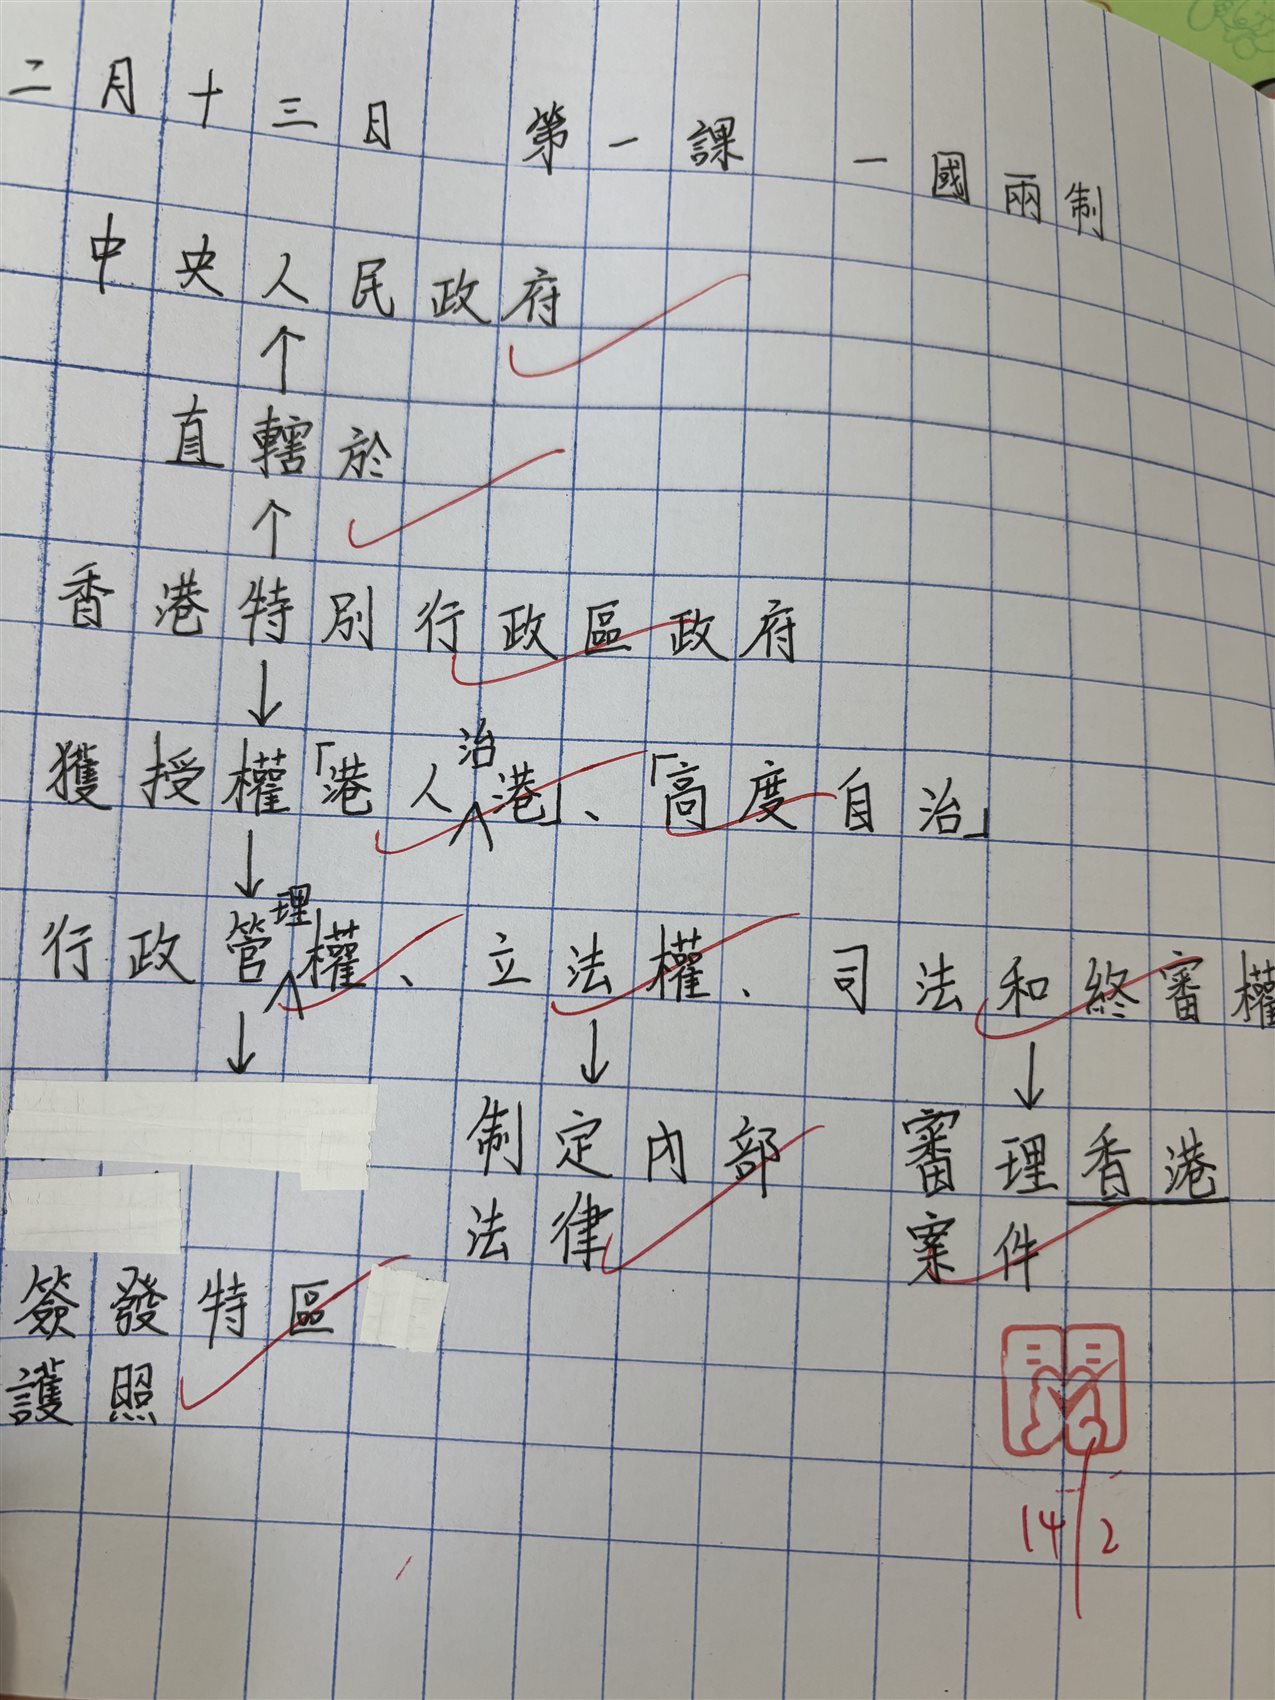 二月十三日 第一課 一國兩制
中央人民政府
↑
直轄於
↑
香港特別行政區政府
↓
獲授權「港人治港」、「高度自治」
↓
行政管理權、立法權、司法和終審權
↓ ↓ ↓
制定內部 審理香港
法律 案件
簽發特區
護照
閱
14/2